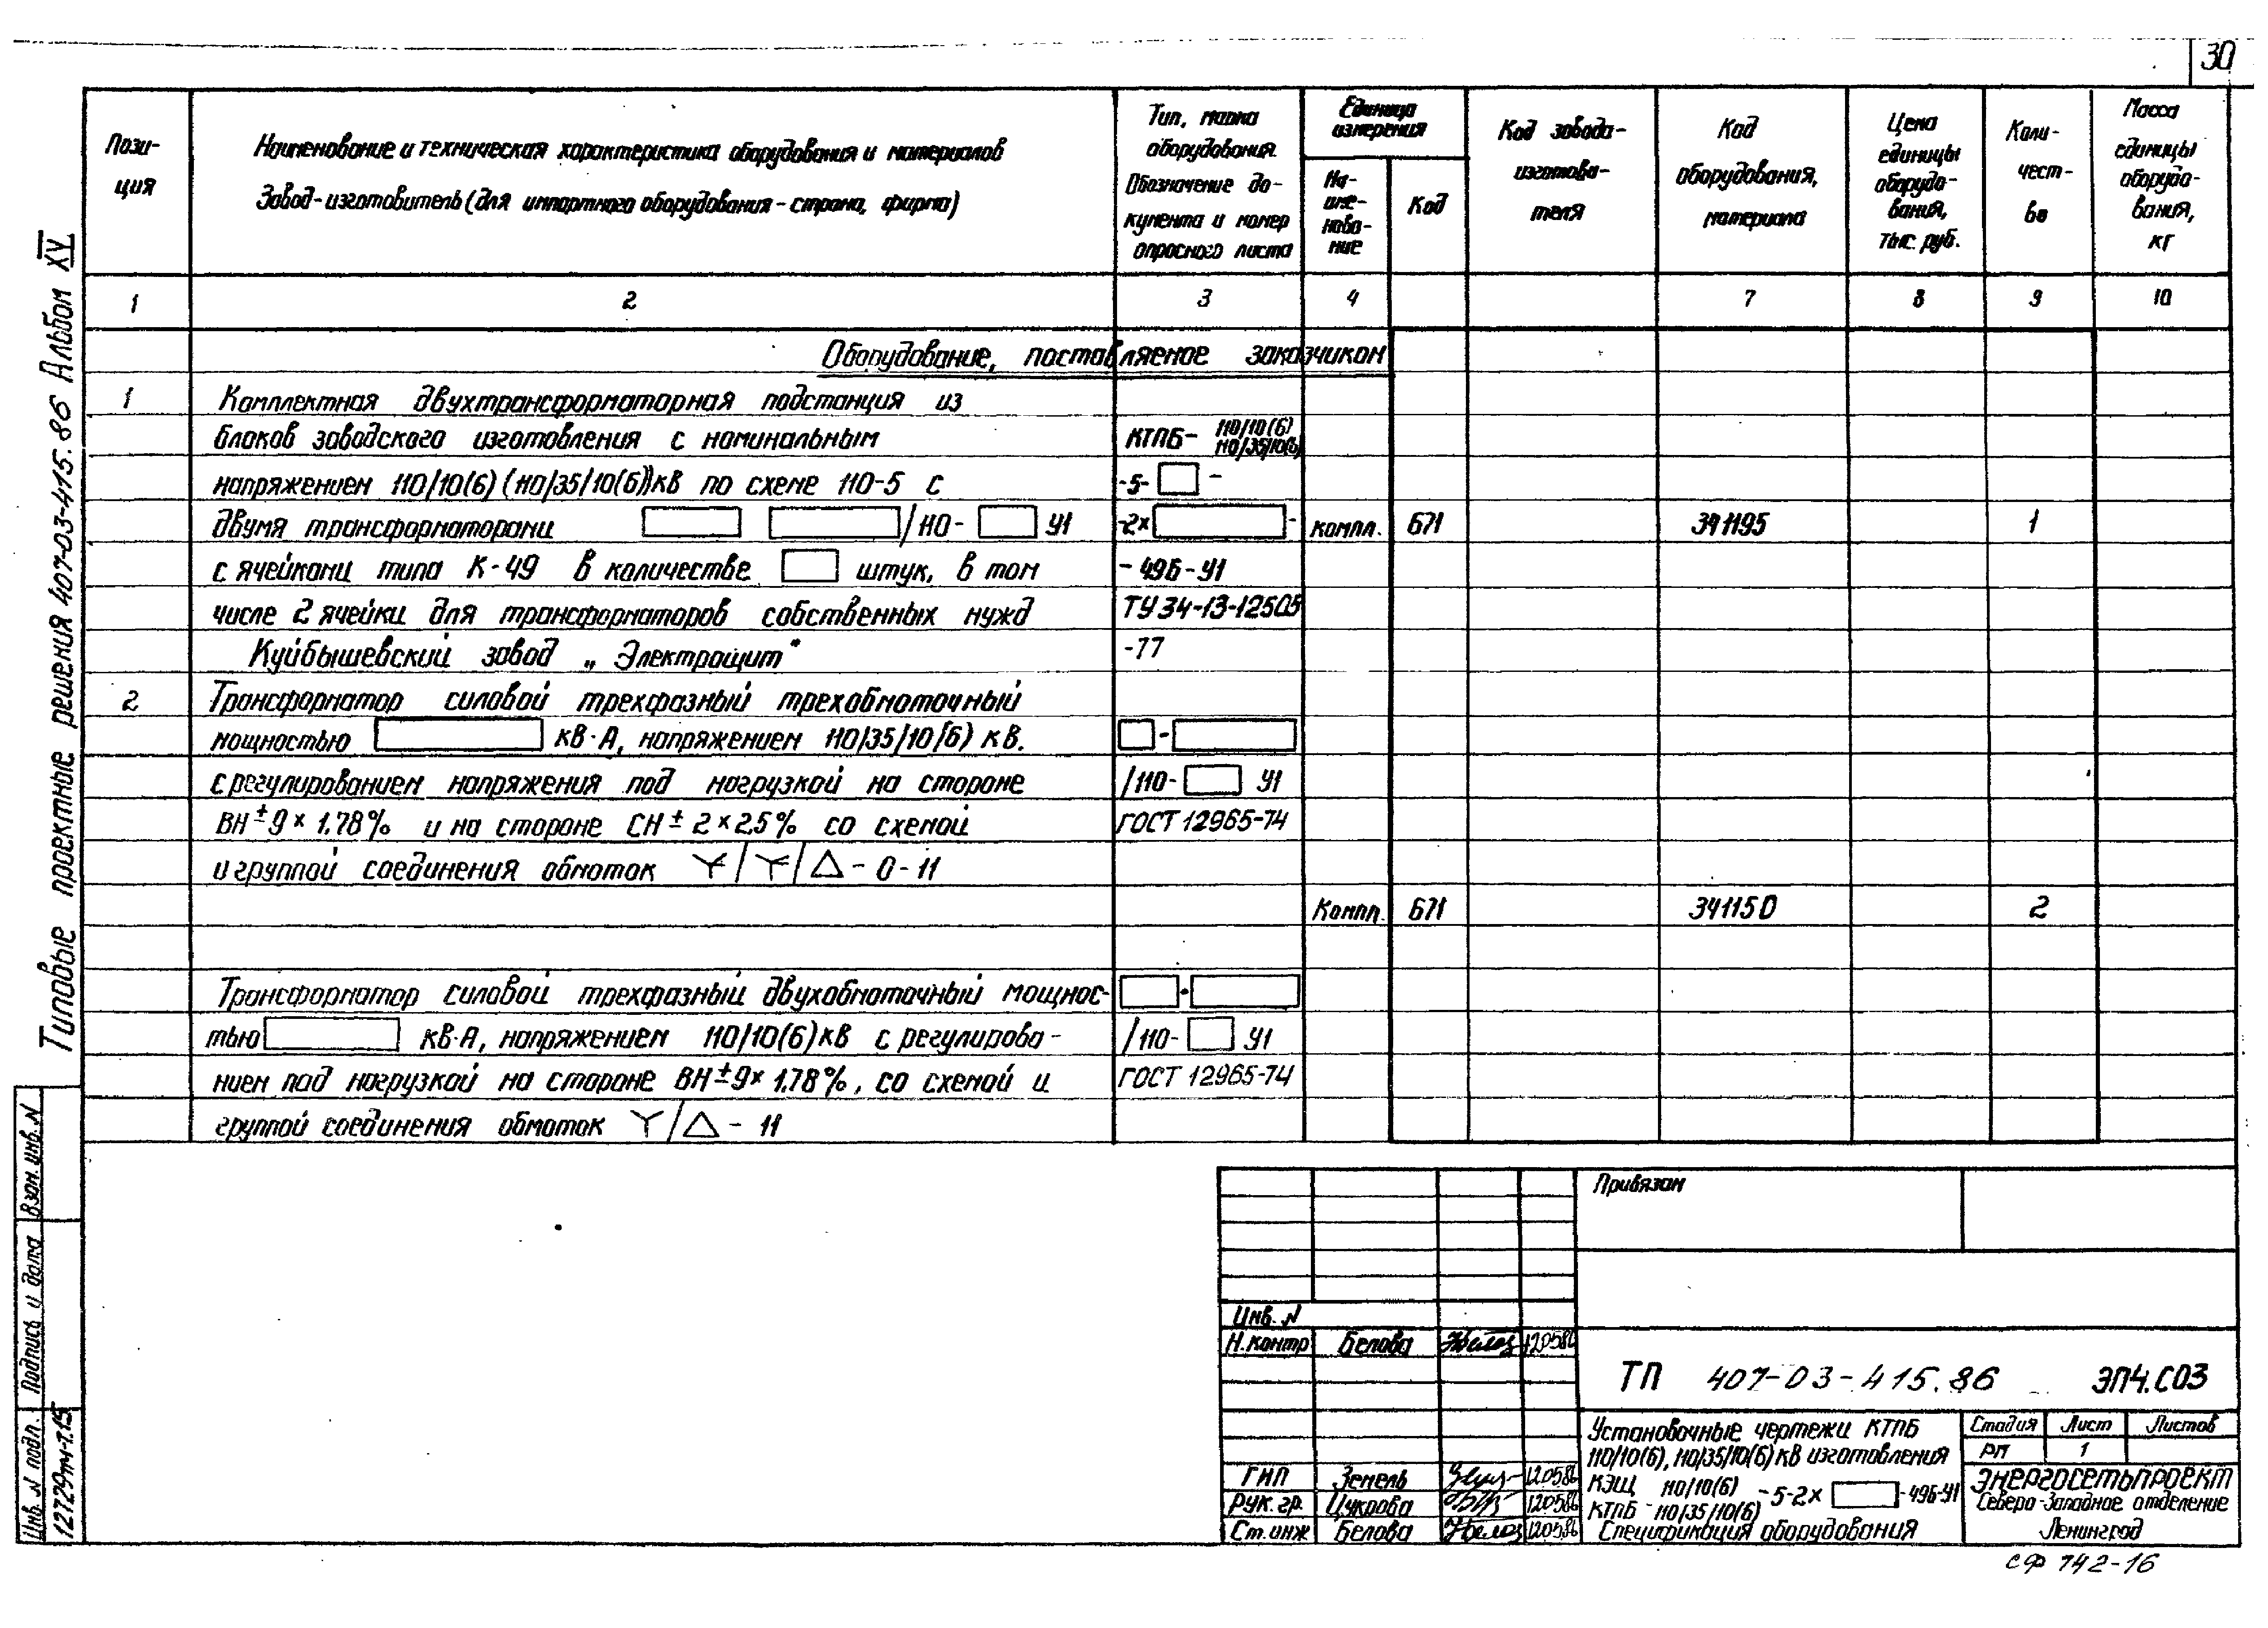 30
Пози-
ция
Наименование и техническая характеристика оборудования и материалов
Завод-изготовитель (для импортного оборудования - страна, фирма)
Тип, марка
оборудования.
Обозначение до-
кумента и номер
опросного листа
Единица
измерения
На-
име-
нова-
ние
Код
Код завода-
изготови-
теля
Код
оборудования,
материала
Цена
единицы
оборудо-
вания,
тыс. руб.
Коли-
чест-
во
Масса
единицы
оборудо-
вания,
кг
1 2 3 4 7 8 9 10
Оборудование, поставляемое заказчиком
1 Комплектная двухтрансформаторная подстанция из
блоков заводского изготовления с номинальным КТПБ- 110/10(6) 110/35/10(6)
напряжением 110/10(6) (110/35/10(6))кВ по схеме 110-5 с -5- -
двумя трансформаторами /110- У1 -2х - компл. 671 341195 1
с ячейками типа К-49 в количестве штук, в том -49Б-У1
числе 2 ячейки для трансформаторов собственных нужд ТУ34-13-12505
Куйбышевский завод „Электрощит" -77
2 Трансформатор силовой трехфазный трехобмоточный
мощностью кВ·А, напряжением 110/35/10(6) кВ. -
с регулированием напряжения под нагрузкой на стороне /110- У1
ВН ± 9 × 1,78% и на стороне СН ± 2 × 2,5% со схемой ГОСТ 12965-74
и группой соединения обмоток Y/Y/△ - 0 - 11
Компл. 671 341150 2
Трансформатор силовой трехфазный двухобмоточный мощнос- -
тью кВ·А, напряжением 110/10(6)кВ с регулирова- /110- У1
нием под нагрузкой на стороне ВН ± 9 × 1,78%, со схемой и ГОСТ 12965-74
группой соединения обмоток Y/△ - 11
Типовые проектные решения 407-03-415.86 Альбом XV
Взам. инв. N
Подпись и дата
Инв. N подл.
12729тм-т.15
Привязан
Инв. N
Н.контр Белова 120586
ТП 407-03-415.86 ЭП4.СО3
Установочные чертежи КТПБ
110/10(6), 110/35/10(6) кВ изготовления
КЭЩ 110/10(6) -5-2х -49Б-У1
КТПБ 110/35/10(6)
Спецификация оборудования
Стадия Лист Листов
РП 1
ГИП Земель 120586
Рук. гр. Цукрова 120586
Ст. инж Белова 120586
ЭНЕРГОСЕТЬПРОЕКТ
Северо-Западное отделение
Ленинград
СФ 742-16